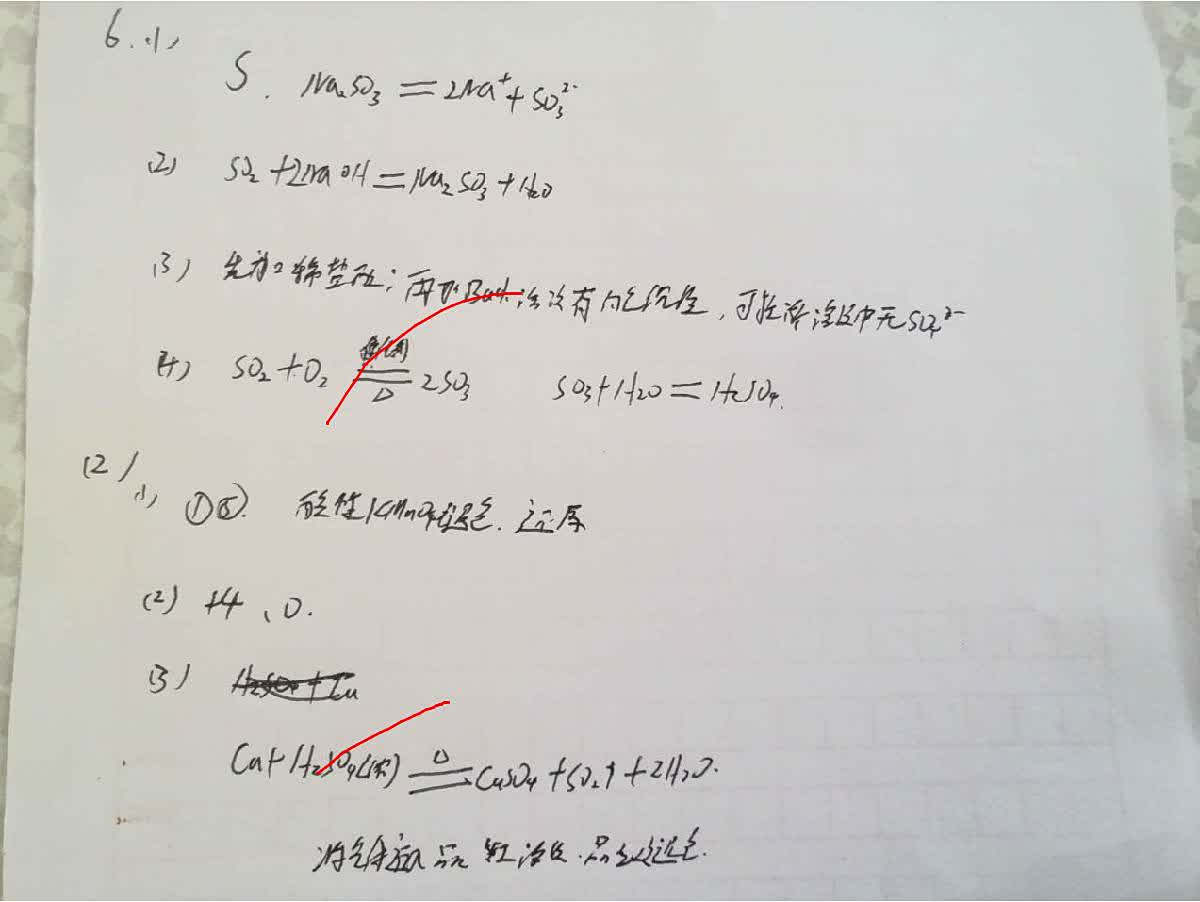 6.(1)
S. Na₂SO₃ = 2Na⁺ + SO₃²⁻
(2) SO₂ + 2NaOH = Na₂SO₃ + H₂O
(3) 先加稀盐酸;再加BaCl₂溶液有白色沉淀,可 溶液中无SO₄²⁻
(4) SO₂ + O₂ 催化剂 == △ 2SO₃ SO₃ + H₂O = H₂SO₄.
(2)
(1) ①⑤. 酸性KMnO₄褪色. 还原
(2) +4、0.
(3) H₂SO₄ + Cu
Cu + H₂SO₄(浓) =△= CuSO₄ + SO₂↑ + 2H₂O.
将气体 品红溶液.品红褪色.